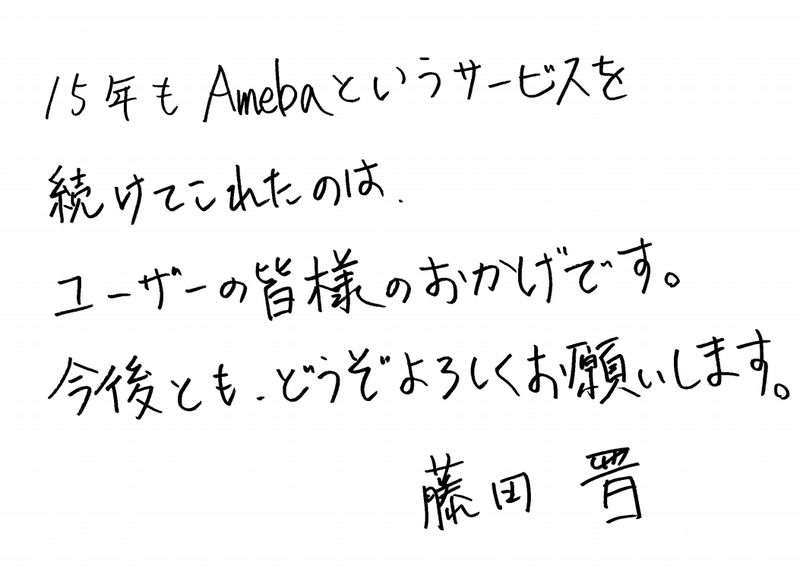 15年もAmebaというサービスを
続けてこれたのは、
ユーザーの皆様のおかげです。
今後とも、どうぞよろしくお願いします。
藤田 晋